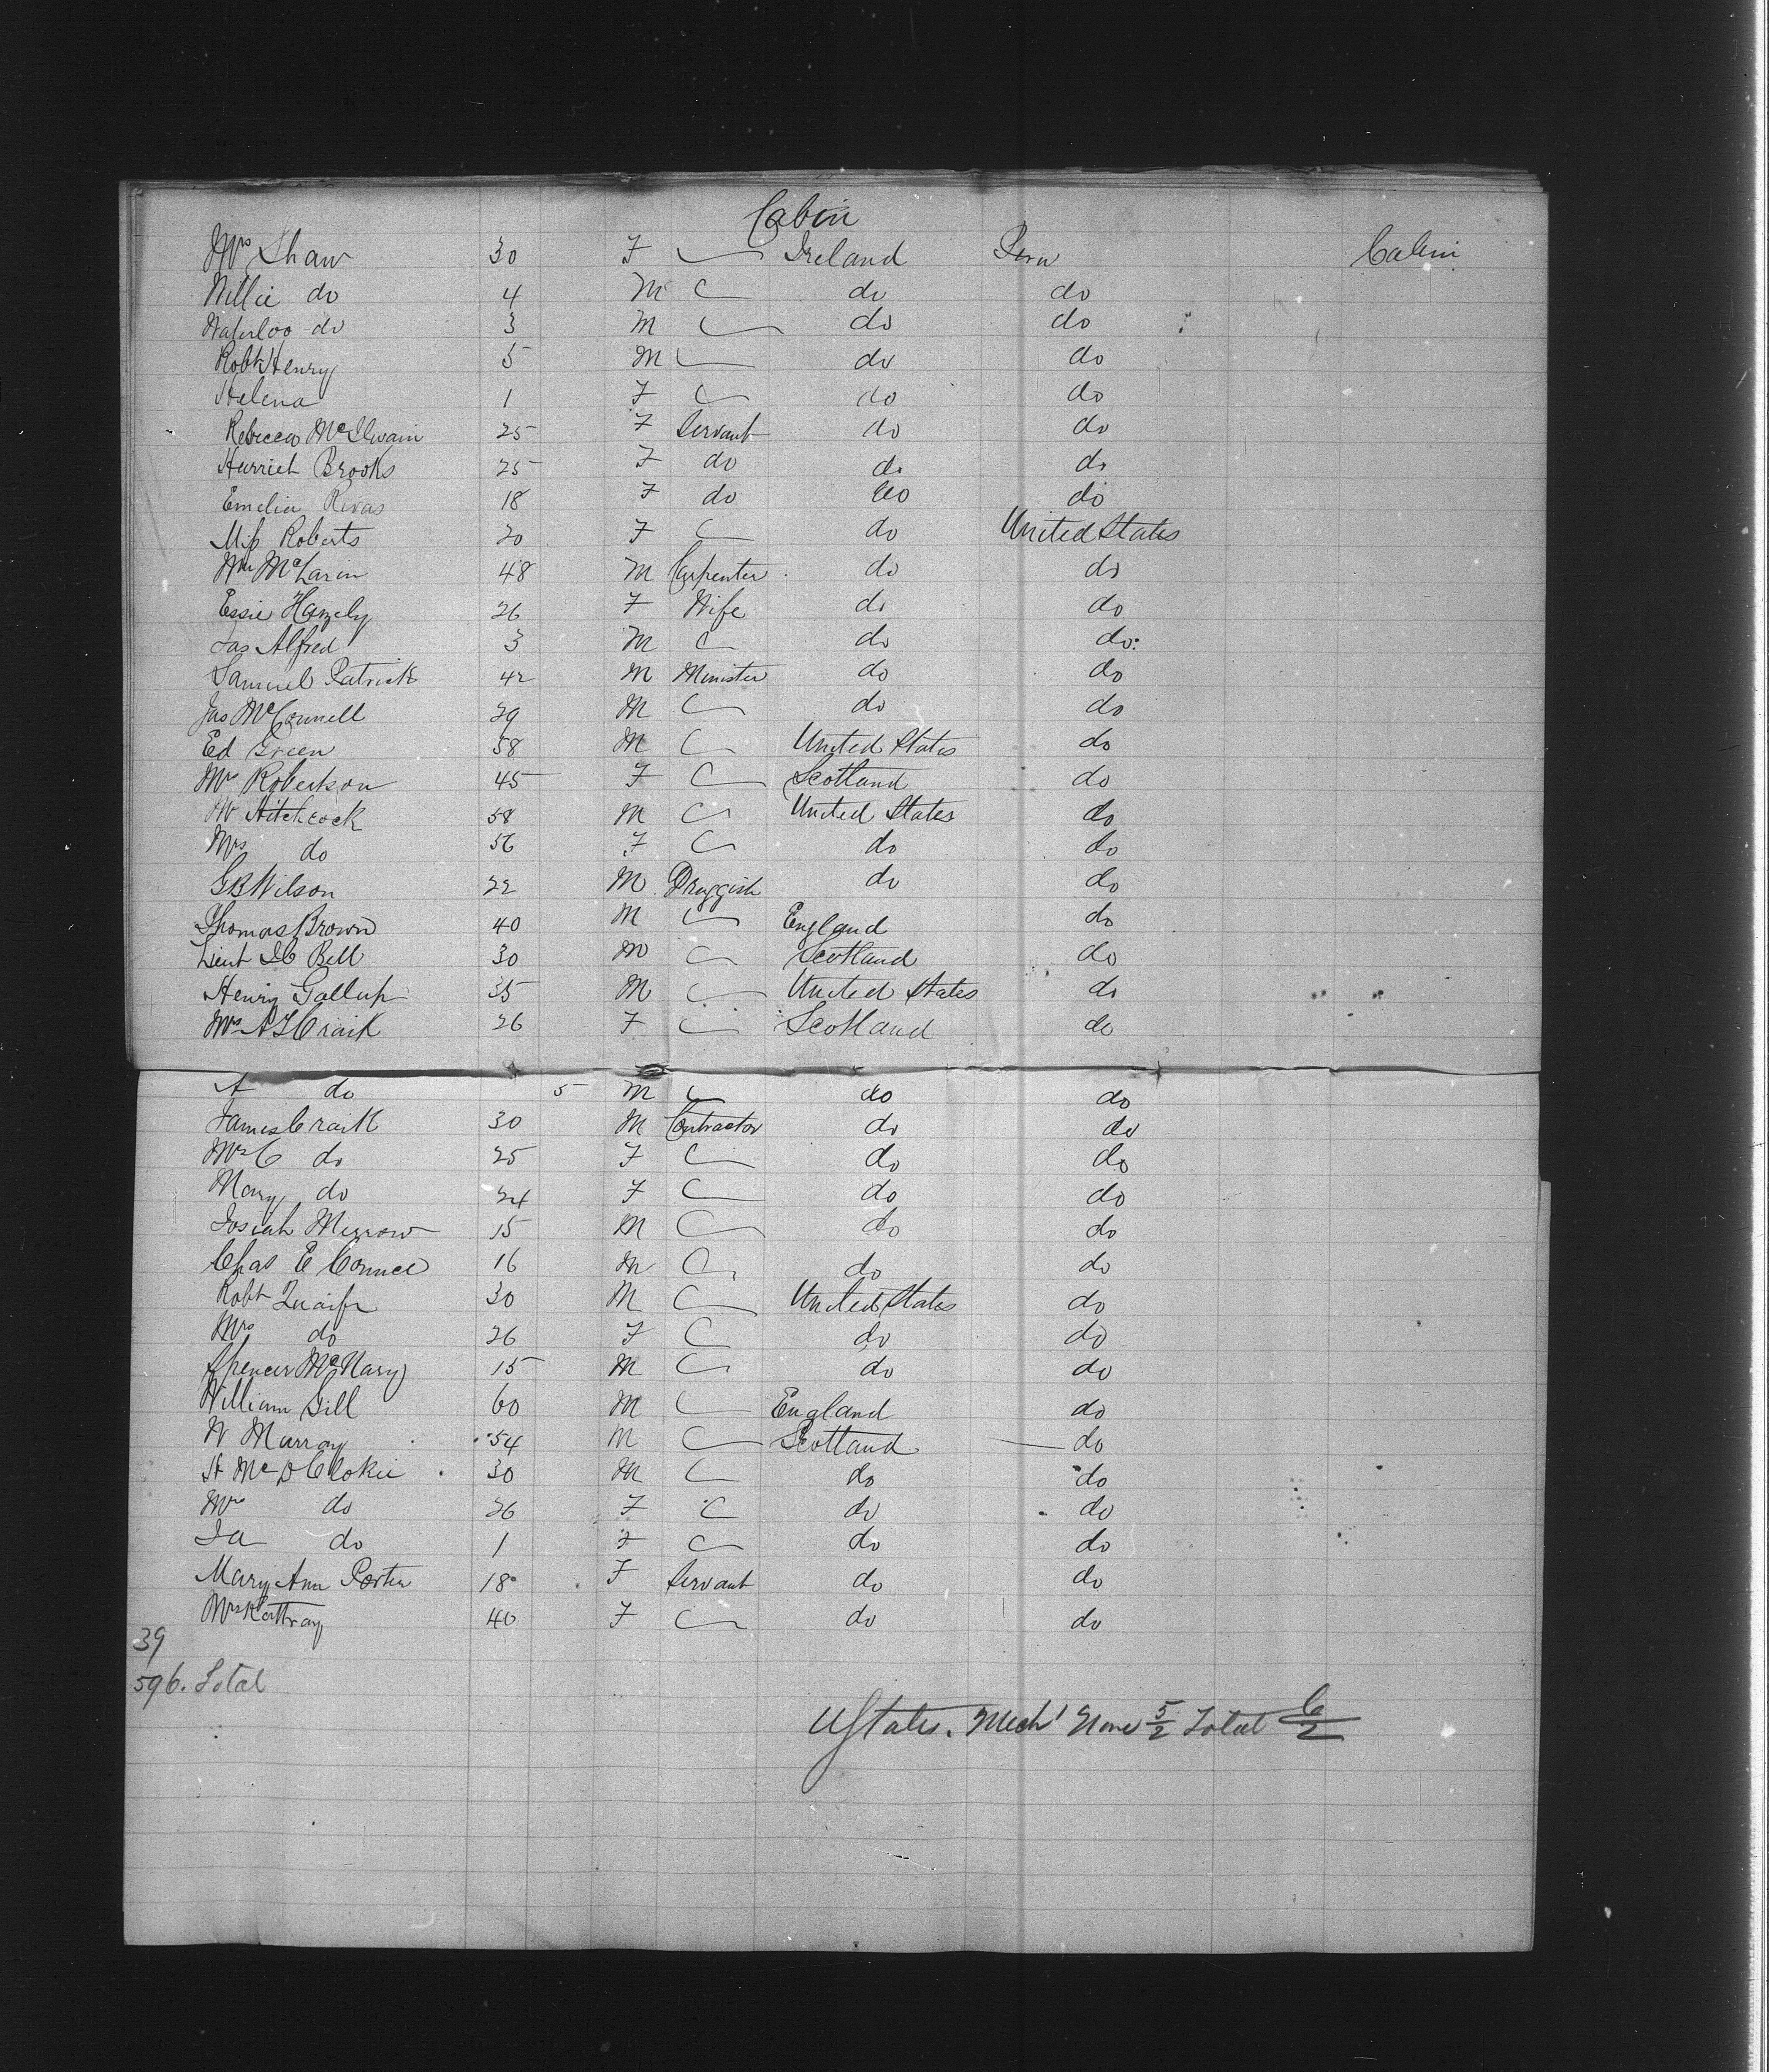 Cabin
Mrs Shaw 30 F Ireland Peru Cabin
Willie do 4 M do do
Waterloo do 3 M do do
Robt Henry 5 M do do
Helena 1 F do do
Rebecca McIlwain 25 F Servant do do
Harriet Brooks 25 F do do do
Emelia Rivas 18 F do do do
Miss Roberts 20 F do United States
Wm McLaren 48 M Carpenter do do
Essie Hamely 26 F Wife do do
Jas Alfred 3 M do do
Samuel Patrick 42 M Minister do do
Jas McConnell 29 M do do
Ed Green 58 M United States do
Mrs Robertson 45 F Scotland do
W Hitchcock 58 M United States do
Mrs do 56 F do do
GB Wilson 22 M Druggist do do
Thomas Brown 40 M England do
Lieut Bell 30 M Scotland do
Henry Gallup 35 M United States do
Mrs A Craik 26 F Scotland do
A do 5 M do do
James Craik 30 M Contractor do do
Mrs C do 25 F do do
Mary do 24 F do do
Josiah Merrow 15 M do do
Chas E 16 M do do
Robt 30 M United States do
Mrs do 26 F do do
Spencer McNary 15 M do do
William Gill 60 M England do
W Murray 54 M Scotland do
H McD Clokie 30 M do do
Mrs do 26 F do do
do 1 F do do
Mary Ann Porter 18 F Servant do do
Mrs Rattray 40 F do do
39
596. Total
UStates. Mech' None 5/2 Total 6/2